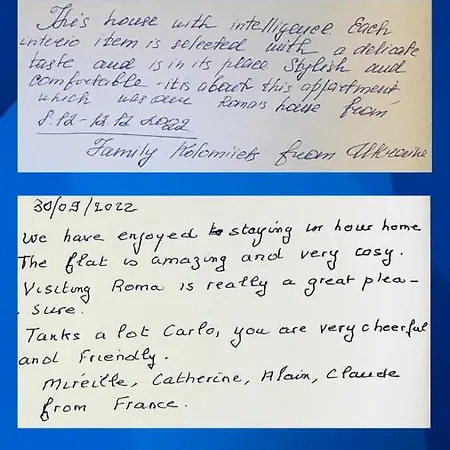 This house with intelligence Each
interio item is selected with a delicate
taste and is in its place. Stylish and
comfortable - it is about this appartment
which was our Roma's house from
8.12 - 12.12 2022
Family Kolomiiets from Ukraine
30/09/2022
We have enjoyed to staying in hour home
The flat is amazing and very cosy.
Visiting Roma is really a great plea-
sure.
Tanks a lot Carlo, you are very cheerful
and Friendly.
Mireille, Catherine, Alain, Claude
from France.